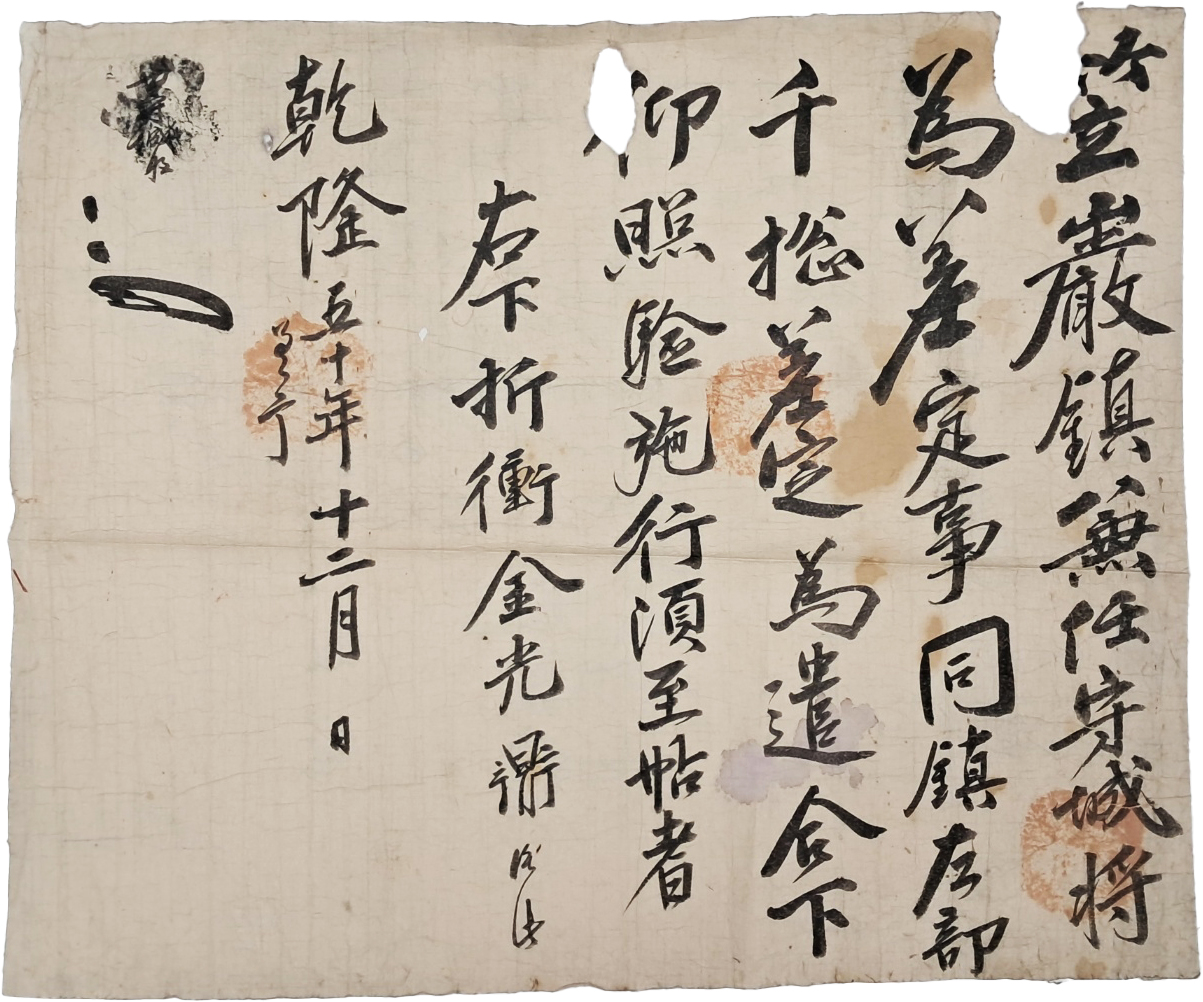 笠巖鎭兼任守城將
為差定事同鎭左部
千捴差定為遣合下
仰照驗施行須至帖者
右下折衝金光鼎 准此
乾隆五十年十二月 日